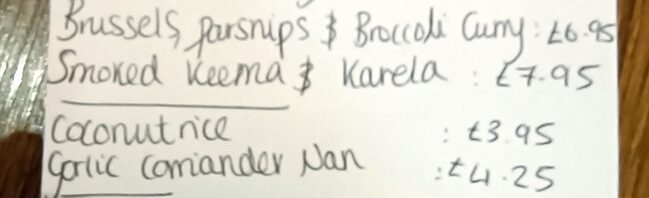 Brussels, parsnips & Broccoli Curry : £6.95
Smoked Keema & Karela : £7.95
Coconut rice : £3.95
Garlic Corriander Nan : £4.25